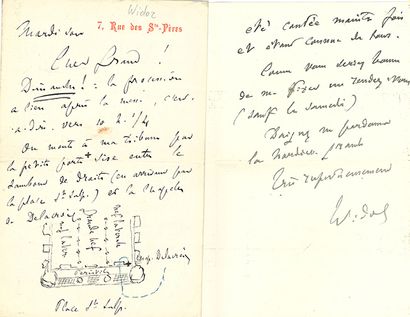 Widor
7, Rue des Sts-Pères
Mardi soir
Cher ami !
Dimanche ! : la procession
a lieu après la messe, c'est-
à-dire vers 10 h 1/4
On monte à ma tribune par
la petite porte sise entre le
tambour de droite (en arrivant par
la place St Sulp.) et la chapelle
de Delacroix
nef latérale
Grande nef
nef latérale
Péristyle
Chap. Delacroix
Place St Sulp.
été contée maintes fois
et étant connue de tous.
vous seriez bien
de me fixer un rendez-vous
(sauf le samedi)
Daignez me pardonner
la hardiesse grande
Très respectueusement
Widor